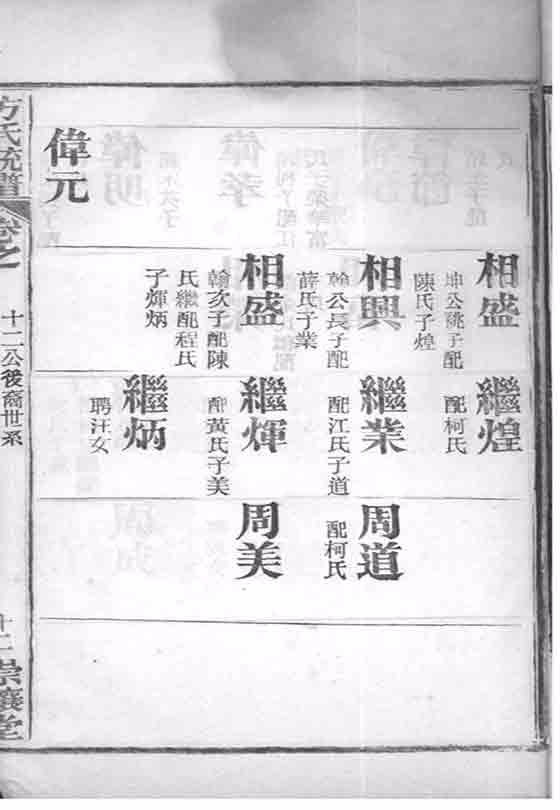 相盛
坤公祧子配
陳氏子煌
相興
翰公長子配
薛氏子業
相盛
翰次子配陳
氏繼配程氏
子輝炳
偉元
繼煌
配柯氏
繼業
配江氏子道
繼輝
配黃氏子美
繼炳
聘汪女
周道
配柯氏
周美
方氏統譜
卷之
十二公後裔世系
十二
崇讓堂